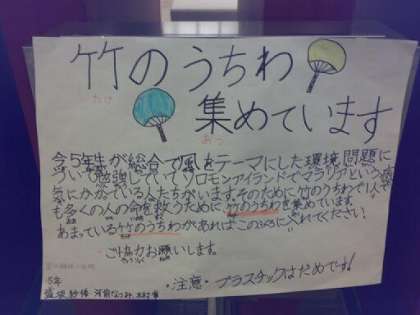 竹のうちわ
たけ
集めています
あつ
今5年生が総合で風をテーマにした環境問題に
ついて勉強していて、ソロモンアイランドでマラリアという病
気にかかっている人たちがいます。そのために竹のうちわで1人で
も多くの人の命を救うために、竹のうちわを集めています。
あまっている竹のうちわがあればこのふくろに入れてください。
ご協力お願いします。
5年
・注意・プラスチックはだめです!